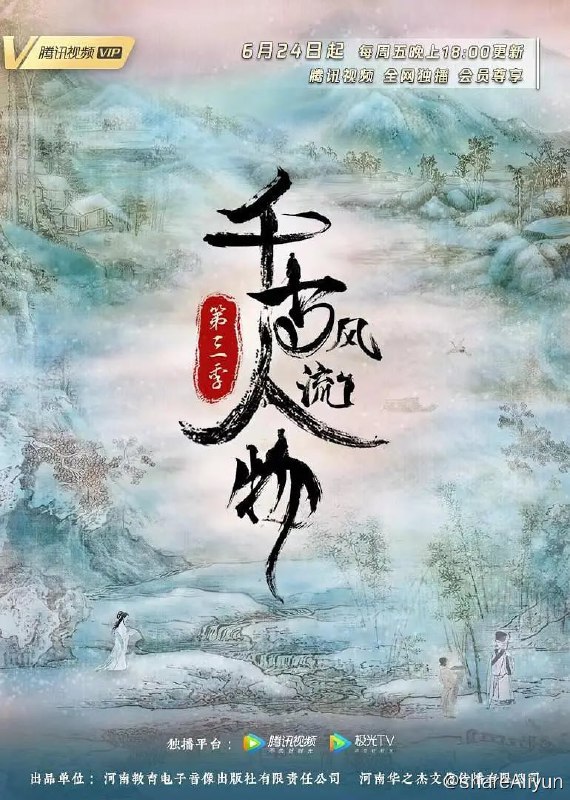 腾讯视频 VIP
6月24日起 每周五晚上18:00更新
腾讯视频 全网独播 会员尊享
千古风流人物
第三季
独播平台： 腾讯视频 极光TV
出品单位：河南教育电子音像出版社有限责任公司 河南华之杰文化传播有限公司
@shareAliyun